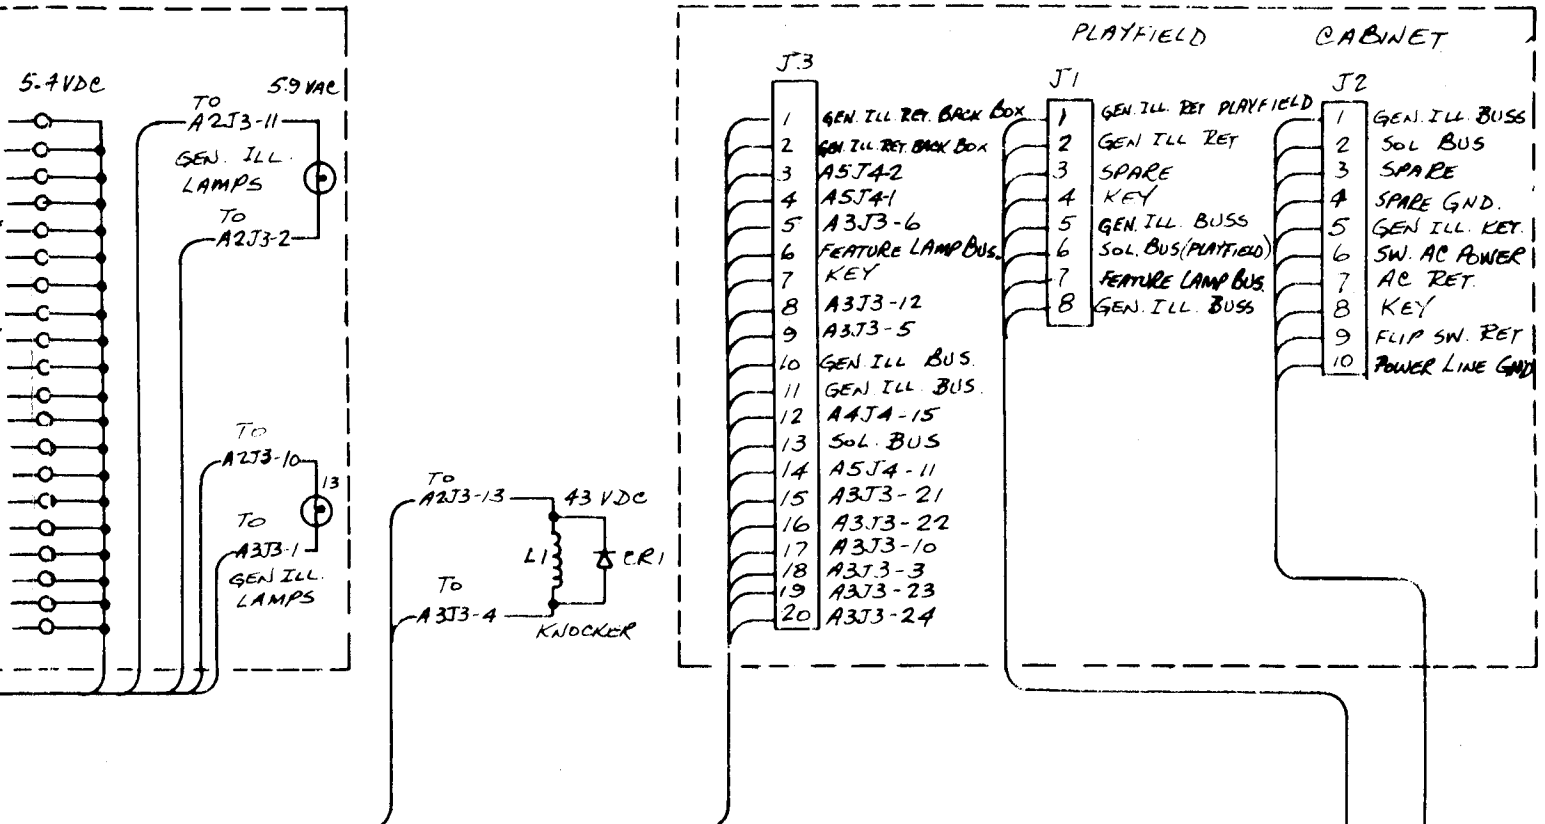 5.4VDC
5.9 VAC
TO
A2J3-11
GEN. ILL.
LAMPS
TO
A2J3-2
TO
A2J3-10
13
TO
A3J3-1
GEN ILL.
LAMPS
TO
A2J3-13
43 VDC
L1
CR1
TO
A3J3-4
KNOCKER
J3
1 GEN. ILL. RET. BACK BOX
2 GEN. ILL. RET. BACK BOX
3 A5J4-2
4 A5J4-1
5 A3J3-6
6 FEATURE LAMP BUS.
7 KEY
8 A3J3-12
9 A3J3-5
10 GEN. ILL BUS.
11 GEN. ILL. BUS.
12 A4J4-15
13 SOL. BUS
14 A5J4-11
15 A3J3-21
16 A3J3-22
17 A3J3-10
18 A3J3-3
19 A3J3-23
20 A3J3-24
PLAYFIELD
J1
1 GEN. ILL. RET PLAYFIELD
2 GEN ILL RET
3 SPARE
4 KEY
5 GEN. ILL. BUSS
6 SOL. BUS (PLAYFIELD)
7 FEATURE LAMP BUS.
8 GEN. ILL. BUSS
CABINET
J2
1 GEN. ILL. BUSS
2 SOL BUS
3 SPARE
4 SPARE GND.
5 GEN ILL. RET.
6 SW. AC POWER
7 AC RET.
8 KEY
9 FLIP SW. RET
10 POWER LINE GND